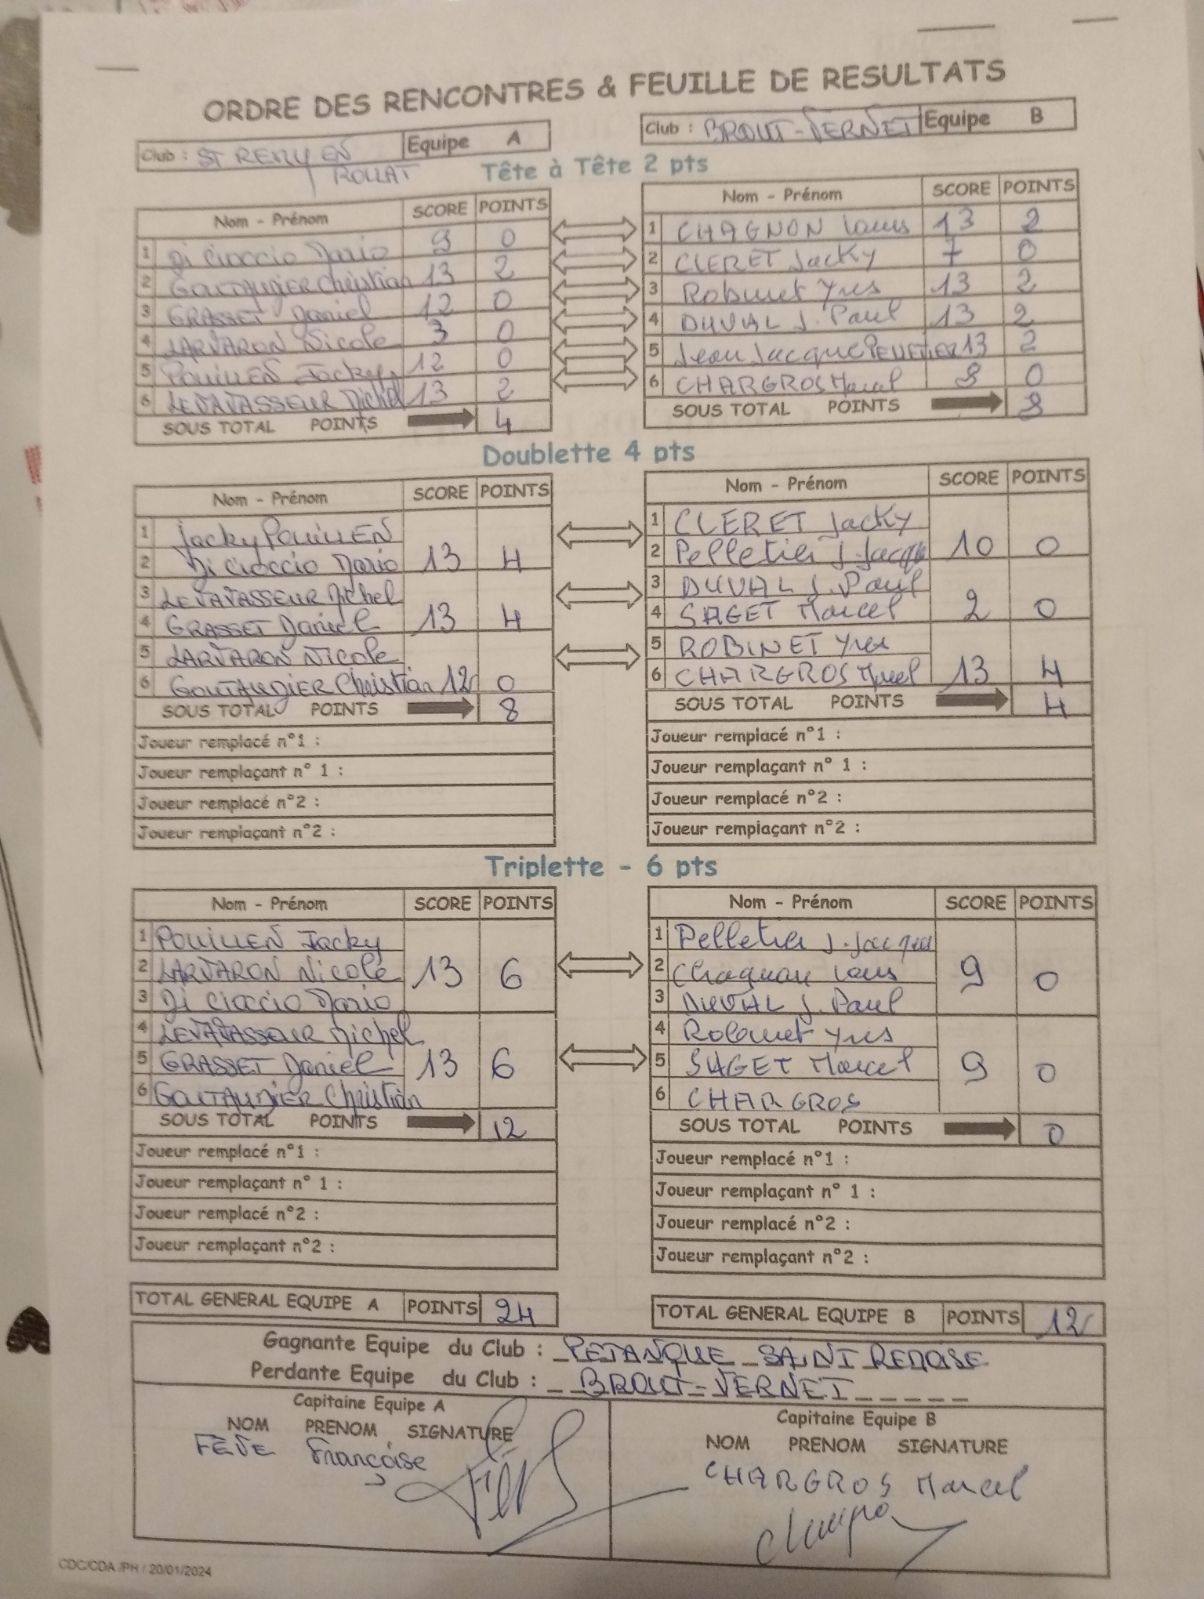 ORDRE DES RENCONTRES & FEUILLE DE RESULTATS
Club : ST REMY EN ROLLAT Equipe A
Club : BROUT-VERNET Equipe B
Tête à Tête 2 pts
Nom - Prénom SCORE POINTS Nom - Prénom SCORE POINTS
1 Di Cioccio Dario 9 0 1 CHAGNON Louis 13 2
2 GOUTAUDIER Christian 13 2 2 CLERET Jacky 7 0
3 GRASSET Daniel 12 0 3 Robinet Yves 13 2
4 LARVARON Nicole 3 0 4 DUVAL J. Paul 13 2
5 POUILLEN Jacky 12 0 5 Jean Jacques PELLETIER 13 2
6 LEVAVASSEUR Michel 13 2 6 CHARGROS Marcel 8 0
SOUS TOTAL POINTS 4 SOUS TOTAL POINTS 8
Doublette 4 pts
Nom - Prénom SCORE POINTS Nom - Prénom SCORE POINTS
1 Jacky POUILLEN 1 CLERET Jacky
2 Di Cioccio Dario 13 4 2 Pelletier J. Jacque 10 0
3 LEVAVASSEUR Michel 3 DUVAL J. Paul
4 GRASSET Daniel 13 4 4 SAGET Marcel 2 0
5 LARVARON Nicole 5 ROBINET Yves
6 GOUTAUDIER Christian 12 0 6 CHARGROS Marcel 13 4
SOUS TOTAL POINTS 8 SOUS TOTAL POINTS 4
Joueur remplacé n°1 : Joueur remplacé n°1 :
Joueur remplaçant n° 1 : Joueur remplaçant n° 1 :
Joueur remplacé n°2 : Joueur remplacé n°2 :
Joueur remplaçant n°2 : Joueur remplaçant n°2 :
Triplette - 6 pts
Nom - Prénom SCORE POINTS Nom - Prénom SCORE POINTS
1 POUILLEN Jacky 1 Pelletier J. Jacques
2 LARVARON Nicole 13 6 2 Chagnon Louis 9 0
3 Di Cioccio Dario 3 DUVAL J. Paul
4 LEVAVASSEUR Michel 4 Robinet Yves
5 GRASSET Daniel 13 6 5 SAGET Marcel 9 0
6 GOUTAUDIER Christian 6 CHARGROS
SOUS TOTAL POINTS 12 SOUS TOTAL POINTS 0
Joueur remplacé n°1 : Joueur remplacé n°1 :
Joueur remplaçant n° 1 : Joueur remplaçant n° 1 :
Joueur remplacé n°2 : Joueur remplacé n°2 :
Joueur remplaçant n°2 : Joueur remplaçant n°2 :
TOTAL GENERAL EQUIPE A POINTS 24 TOTAL GENERAL EQUIPE B POINTS 12
Gagnante Equipe du Club : PETANQUE SAINT REMOISE
Perdante Equipe du Club : BROUT-VERNET
Capitaine Equipe A Capitaine Equipe B
NOM PRENOM SIGNATURE NOM PRENOM SIGNATURE
FÈVE Françoise CHARGROS Marcel
CDC/CDA /PH / 20/01/2024